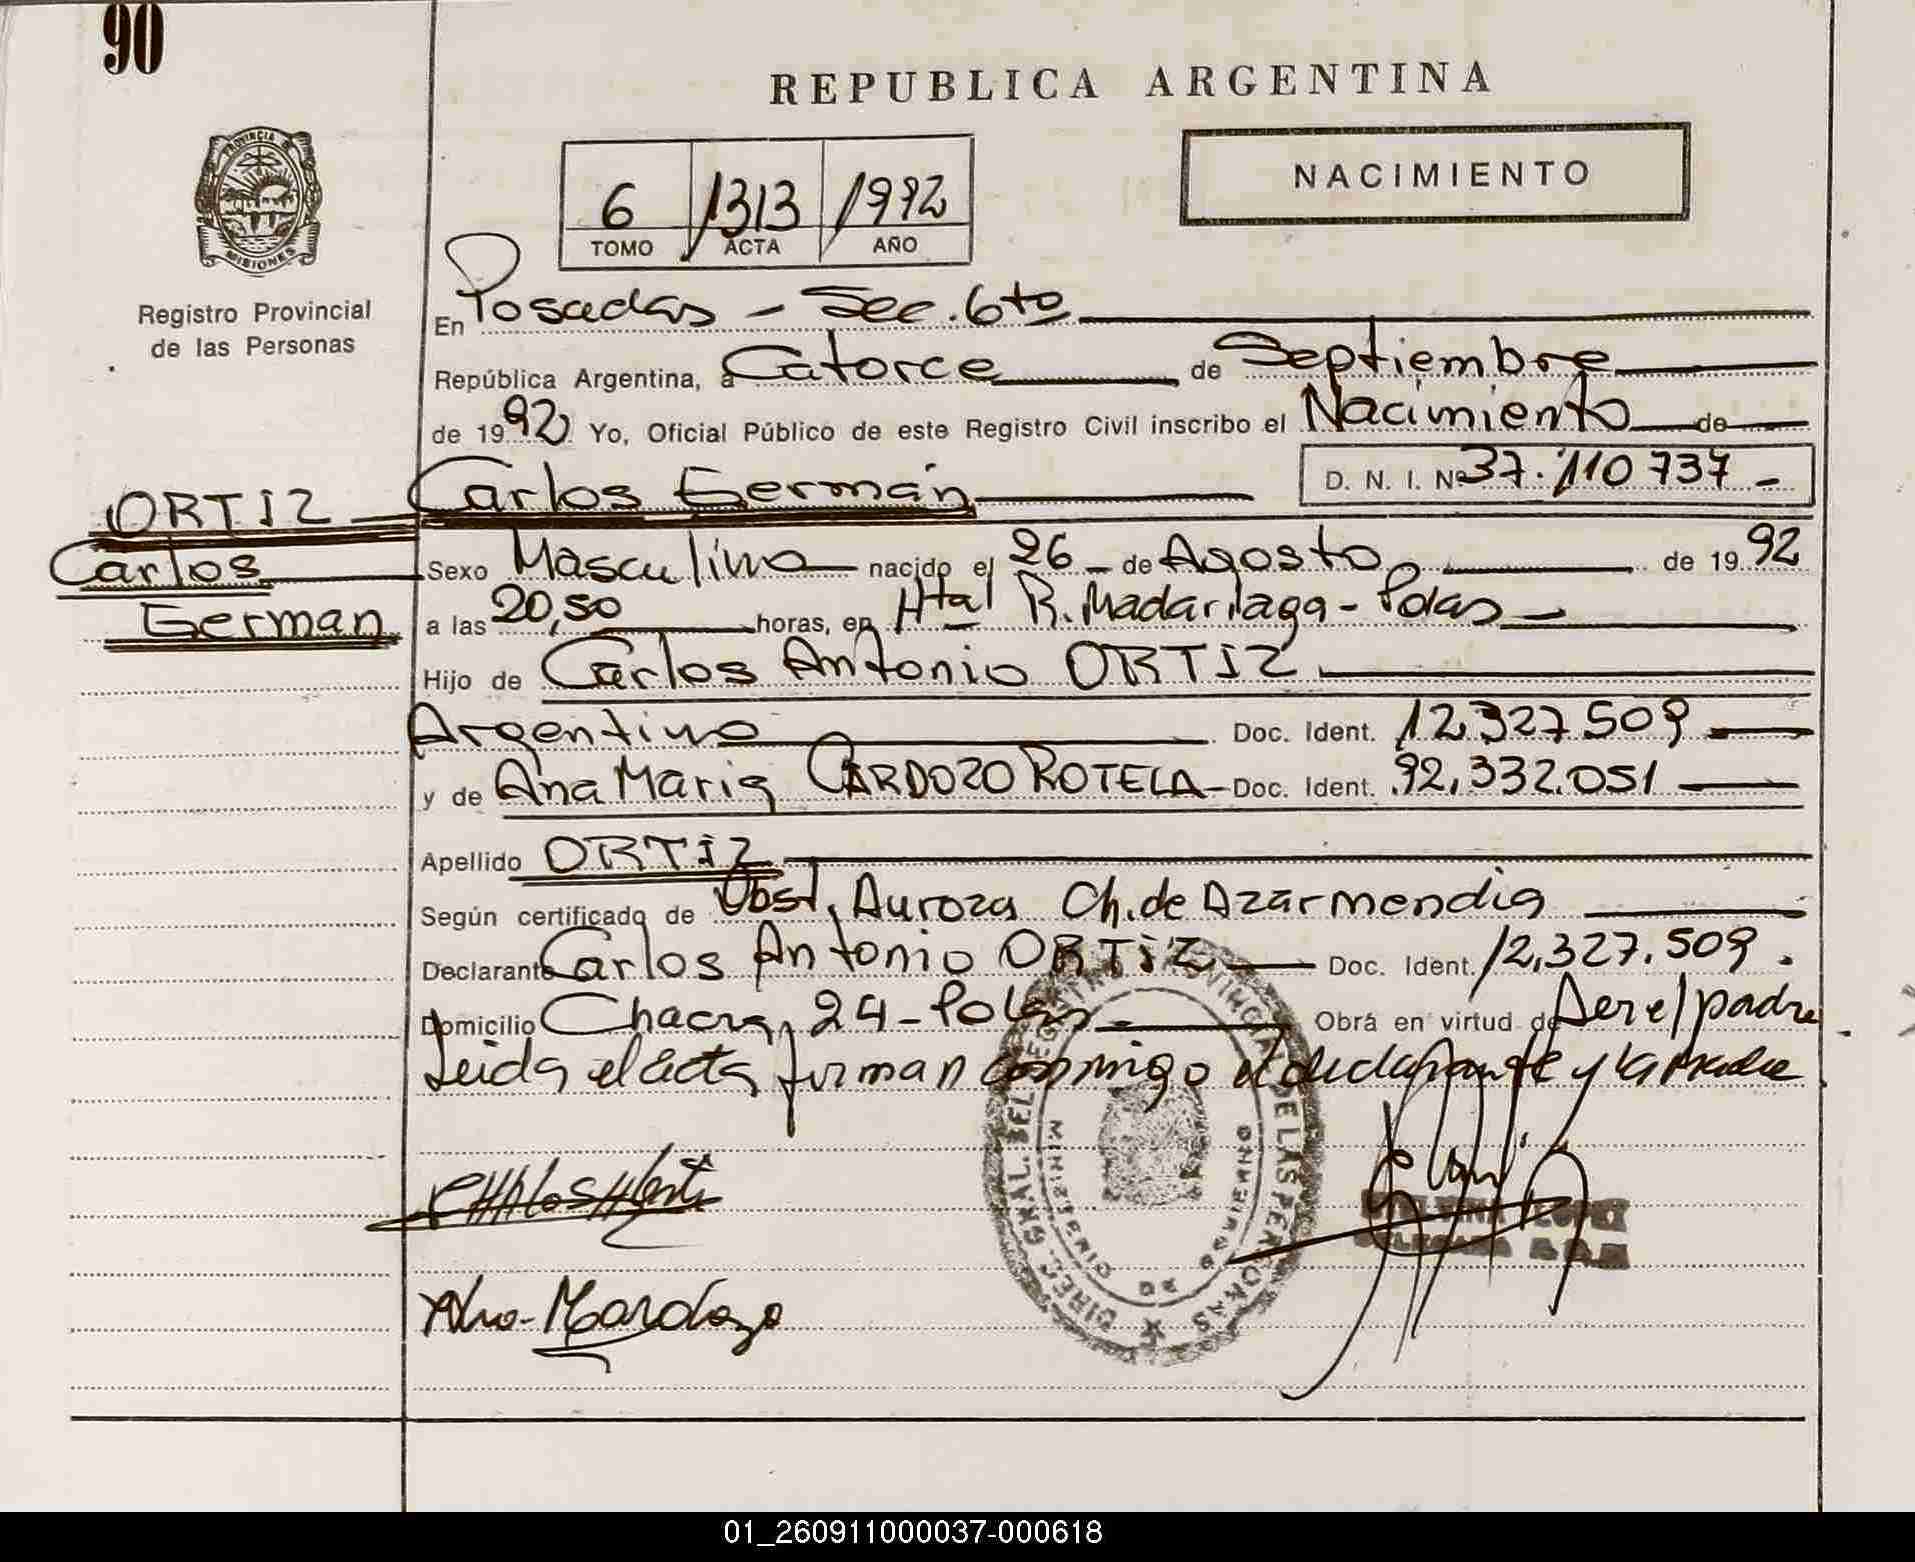 90
REPUBLICA ARGENTINA
PROVINCIA D
MISIONES
NACIMIENTO
6 1313 1992
TOMO ACTA AÑO
Registro Provincial
de las Personas
En Posadas - Sec. 6to
República Argentina, a Catorce de Septiembre
de 1992 Yo, Oficial Público de este Registro Civil inscribo el Nacimiento de
ORTIZ Carlos Germán D. N. I. Nº 37.110737-
Carlos
German
Sexo Masculino nacido el 26 de Agosto de 1992
a las 20,50 horas, en Htal R. Madariaga - Pdas
Hijo de Carlos Antonio ORTIZ
Argentino Doc. Ident. 12.327.509
y de Ana Maria CARDOZO ROTELA - Doc. Ident. 92.332.051
Apellido ORTIZ
Según certificado de Obst. Aurora Ch. de Azarmendia
Declarante Carlos Antonio ORTIZ Doc. Ident. 12.327.509.
Domicilio Chacra 24 - Pdas Obrá en virtud de Ser el padre
Leida el acta firman conmigo el declarante y la madre
DIREC. GRAL. DEL REGISTRO PROVINCIAL DE LAS PERSONAS
MINISTERIO DE GOBIERNO
01_260911000037-000618